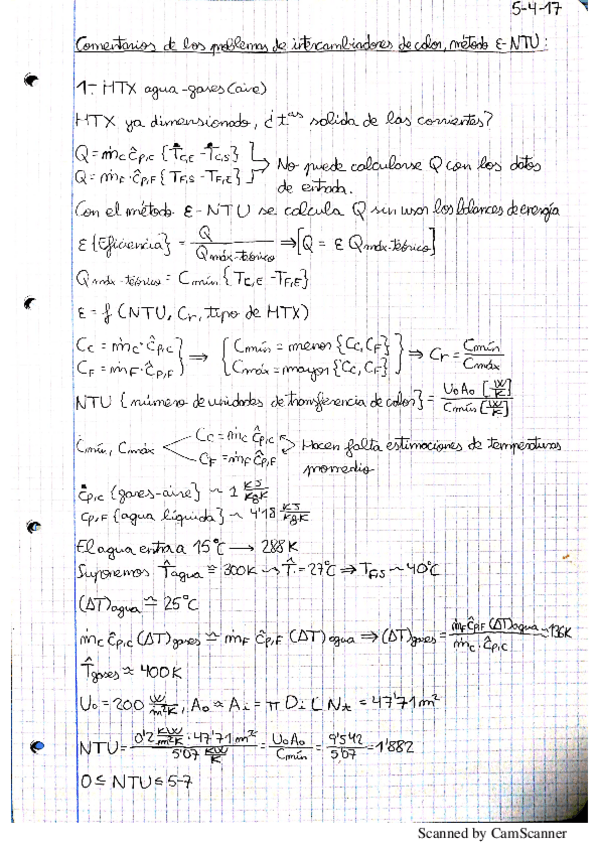 5-4-17
Comentarios de los problemas de intercambiadores de calor, método ε-NTU:
1- HTX agua-gases (aire)
HTX ya dimensionado, ¿tas salida de las corrientes?
Q = ṁc ĉp,c {Tc,E - Tc,S}
Q = ṁF ĉp,F {TF,S - TF,E}
No puede calcularse Q con los datos
de entrada.
Con el método ε-NTU se calcula Q sin usar los balances de energía
ε {Eficiencia} = Q / Qmáx-teórico ⇒ [Q = ε Qmáx-teórico]
Qmáx-teórico = Cmín {Tc,E - TF,E}
ε = f (NTU, Cr, tipo de HTX)
Cc = ṁc·ĉp,c
CF = ṁF·ĉp,F
⇒ {Cmín = menor {Cc, CF}
Cmáx = mayor {Cc, CF}} ⇒ Cr = Cmín / Cmáx
NTU {número de unidades de transferencia de calor} = U0A0 [W/K] / Cmín [W/K]
Cmín, Cmáx
Cc = ṁc ĉp,c
CF = ṁF ĉp,F
Hacen falta estimaciones de temperaturas
promedio
ĉp,c {gases-aire} ~ 1 KJ/KgK
cp,F {agua líquida} ~ 4'18 KJ/KgK
El agua entra a 15°C → 288K
Suponemos T̂agua ≅ 300K → T̂ = 27°C ⇒ TF,S ~ 40°C
(ΔT)agua ≃ 25°C
ṁc ĉp,c (ΔT)gases ≃ ṁF ĉp,F (ΔT)agua ⇒ (ΔT)gases = ṁF ĉp,F (ΔT)agua / ṁc·ĉp,c ~ 136K
T̂gases ≈ 400K
U0 = 200 W/m²K, A0 ≈ Ai = π Di L Nt = 47'71 m²
NTU = 0'2 KW/m²K · 47'71 m² / 5'07 KW/K = U0A0 / Cmín = 9'542 / 5'07 = 1'882
0 ≤ NTU ≤ 5-7
Scanned by CamScanner